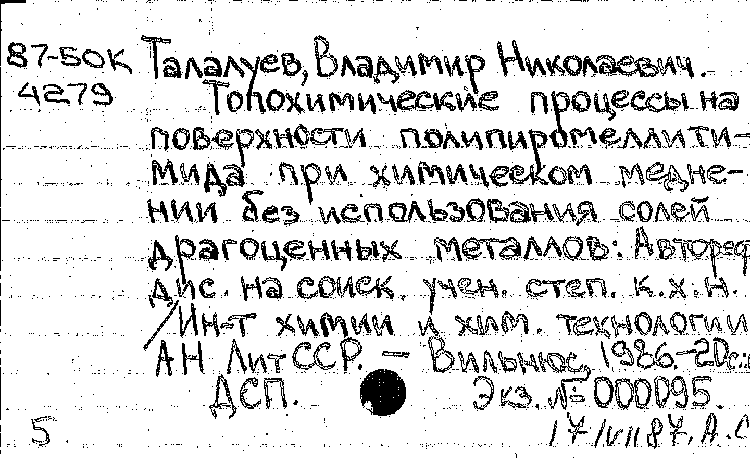 87-50К Талалуев, Владимир Николаевич.
4279 Топохимические процессы на
поверхности полипиромеллити-
мида при химическом медне-
нии без использования солей
драгоценных металлов: Автореф.
дис. на соиск. учен. степ. к.х.н.
/Ин-т химии и хим. технологии
АН ЛитССР. – Вильнюс, 1986.-20с.:
ДСП. Экз. № 000095.
5 17/VII 87. А.С